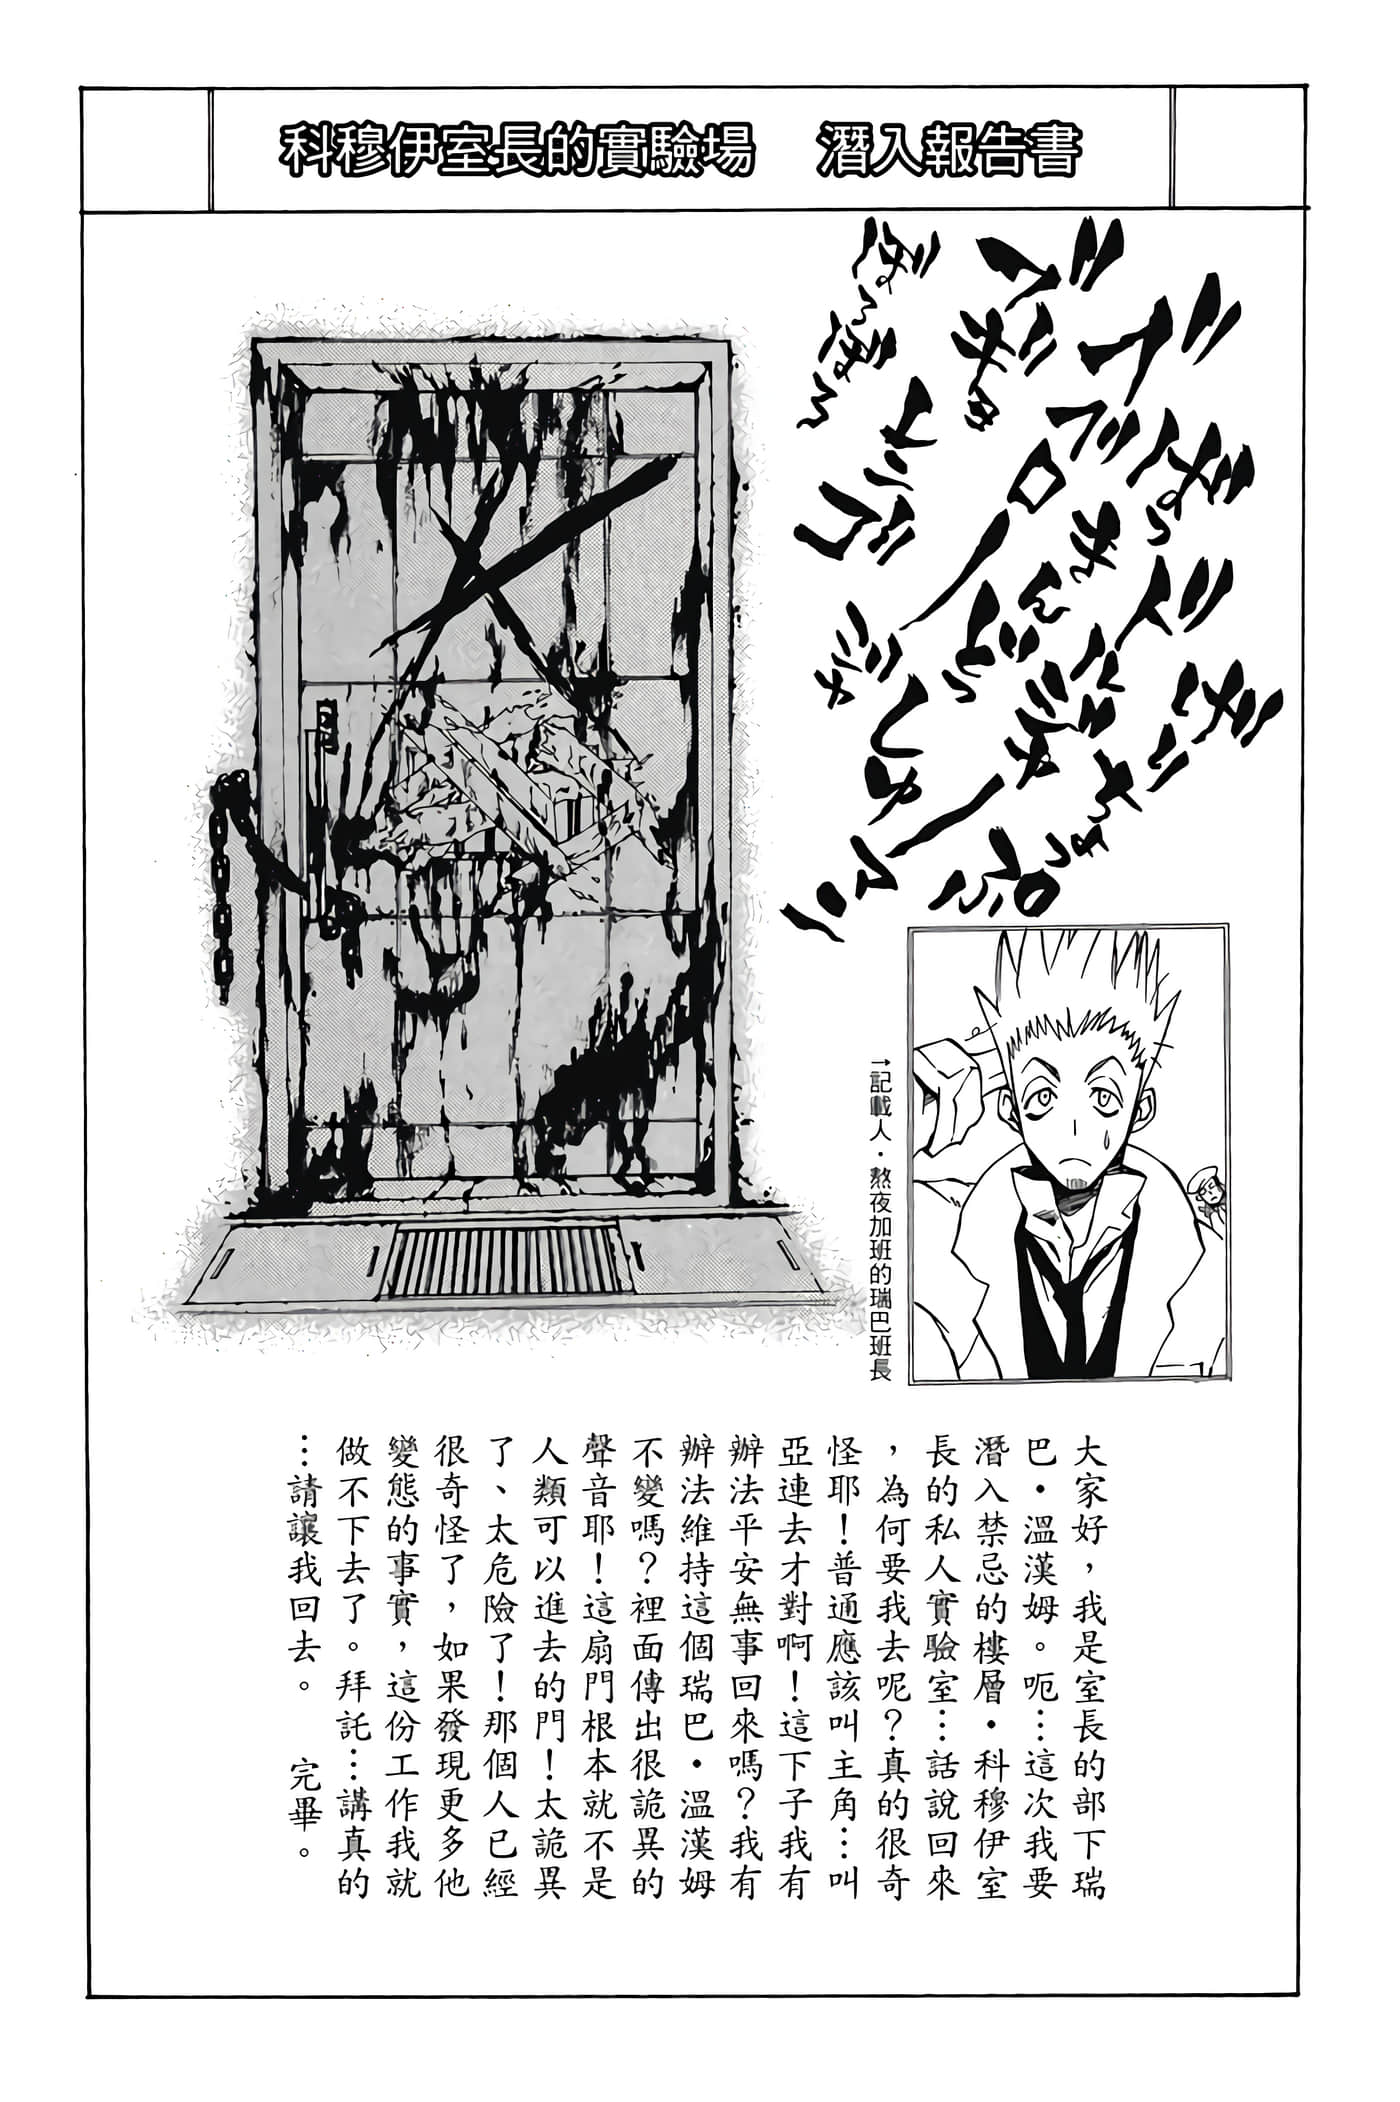 科穆伊室長的實驗場 潛入報告書
↑記載人・熬夜加班的瑞巴班長
大家好，我是室長的部下瑞
巴・溫漢姆。呃…這次我要
潛入禁忌的樓層・科穆伊室
長的私人實驗室…話說回來
，為何要我去呢？真的很奇
怪耶！普通應該叫主角…叫
亞連去才對啊！這下子我有
辦法平安無事回來嗎？我有
辦法維持這個瑞巴・溫漢姆
不變嗎？裡面傳出很詭異的
聲音耶！這扇門根本就不是
人類可以進去的門！太詭異
了、太危險了！那個人已經
很奇怪了，如果發現更多他
變態的事實，這份工作我就
做不下去了。拜託…講真的
…請讓我回去。 完畢。